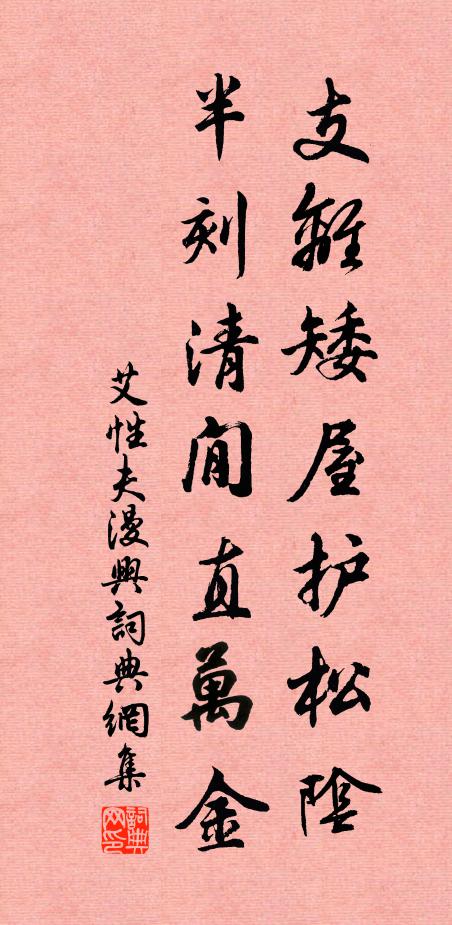 支離矮屋护松陰
半刻清閒直萬金
艾性夫漫興詞典網集
詞典网印